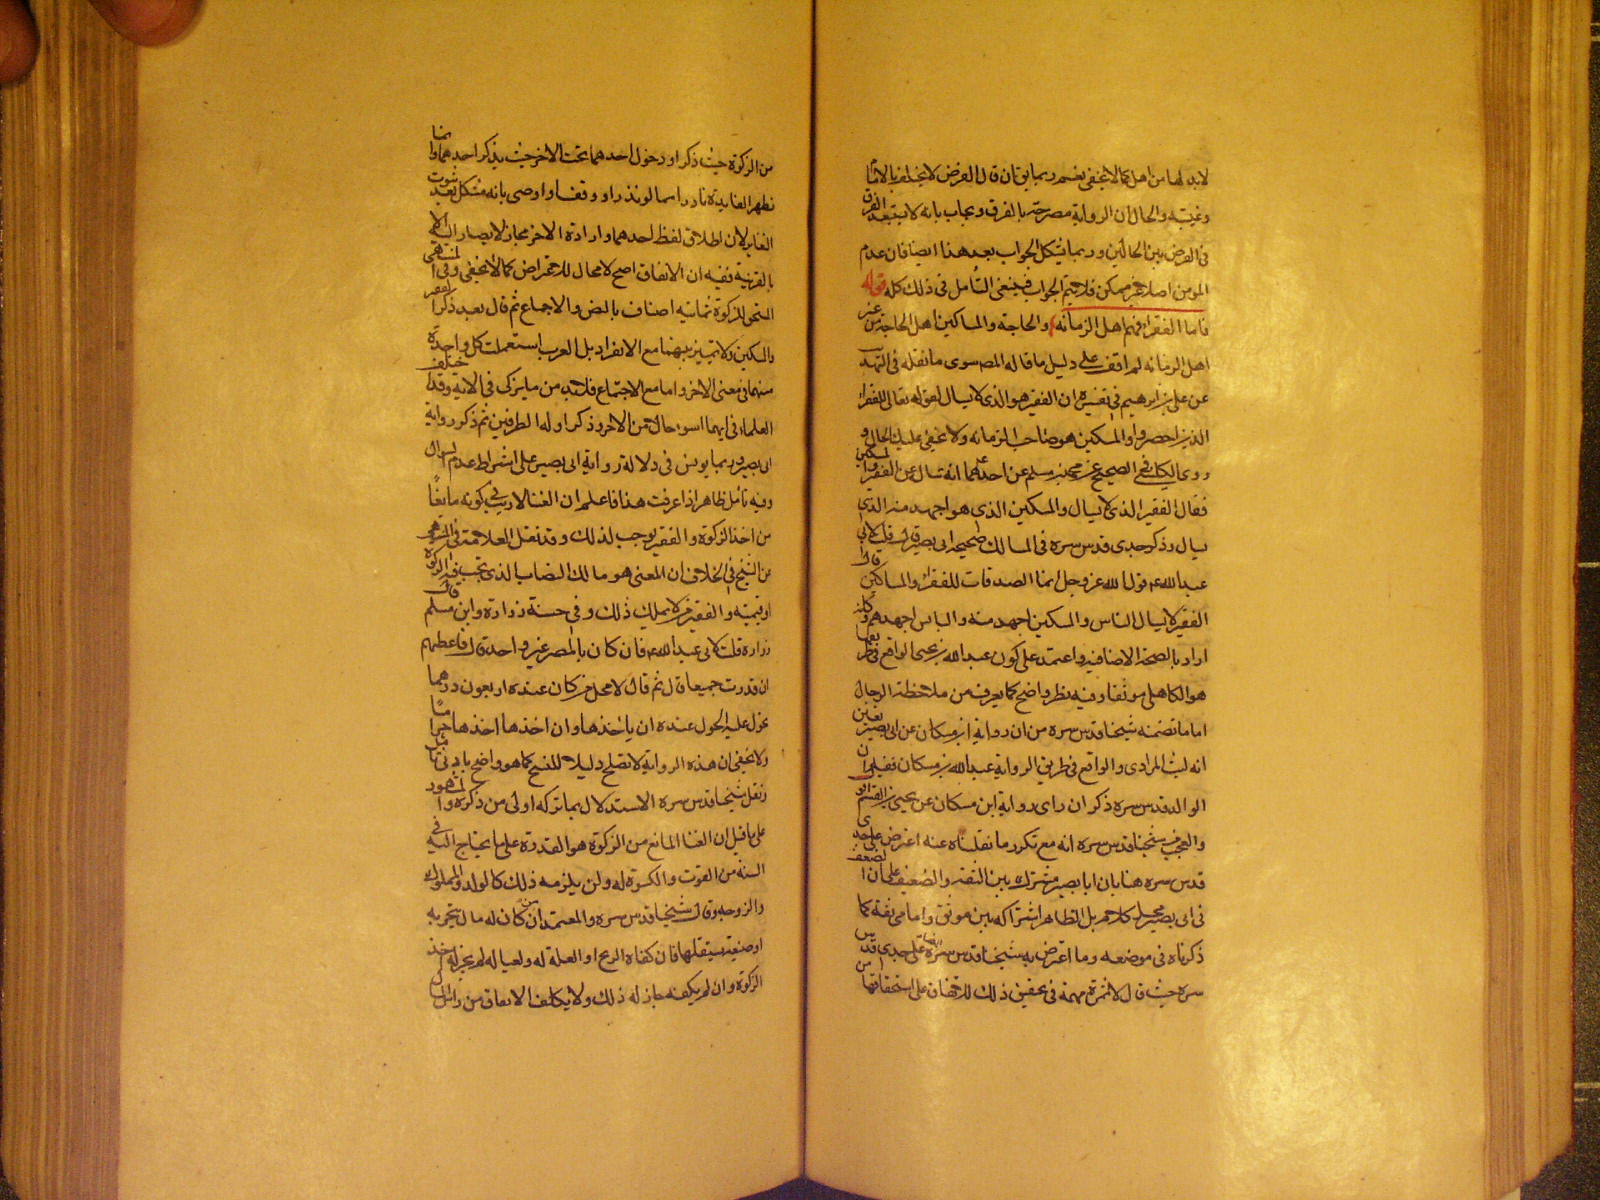 لابد لها من اهل كما لا يخفى نعم ربما يق ان قال الغرض لا يختلف بالاما
وغيبته والحال ان الرواية مصرحة بالفرق ويجاب بانه لا يستبعد الفرق
فى الغرض بين الحالين وربما يشكل الجواب بعد هذا ايضا فان عدم
المؤمن اصلا غير ممكن فلا يتم الجواب فينبغى التأمل فى ذلك كله قوله
فاما الفقراء فهم اهل الزمانة والحاجة والمساكين اهل الحاجة من غير
اهل الزمانة لم اقف على دليل ما قاله المص سوى ما نقله فى التهذيب
عن على بن ابرهيم فى تفسيره ان الفقير هو الذى لا يسال لقوله تعالى للفقراء
الذين احصروا والمسكين هو صاحب الزمانة ولا يخفى عليك الحال و
روى الكافى فى الصحيح عن محمد بن مسلم عن احدهما انه سال عن الفقير والمسكين
فقال الفقير الذى لا يسال والمسكين الذى هو اجهد منه الذى
يسال وذكر جدى قدس سره فى المسالك صحيحة ابى بصير قال قلت لابى
عبد الله ع قول الله عز وجل انما الصدقات للفقراء والمساكين قال
الفقير لا يسال الناس والمسكين اجهد منه والبايس اجهدهم وكانه
اراد بالصحة الاضافية واعتمد على كون عبد الله بن يحيى الواقع فى طريقها
هو الكاهلى موثقا وفيه نظر واضح كما يعرف من ملاحظة الرجال
اما ما تضمنه شيخنا قدس سره من ان رواية ابن مسكان عن ابى بصير تعين
انه ليث المرادى والواقع فى طريق الرواية عبد الله بن مسكان ففيه ان
الوالد قدس سره ذكر ان راى رواية ابن مسكان عن يحيى بن القسم
والعجب من شيخنا قدس سره انه مع تكرر ما نقلناه عنه اعترض على جدى
قدس سره هنا بان ابا بصير مشترك بين الثقة والضعيف على ان الضعف
فى ابى بصير محل كلام بل الظاهر اشتراكه بين موثق وامامى ثقة كما
ذكرناه فى موضعه وما اعترض به شيخنا قدس سره ايضا على جدى قدس
سره حيث قال لا ثمرة مهمة فى تحقيق ذلك للاتفاق على استحقاقهما من
من الزكوة حيث ذكرا ودخول احدهما تحت الاخر حيث يذكر احدهما وانما
تظهر الفايدة نادرا فيما لو نذر او وقف او اوصى بانه مشكل بعد ثبوت
التغاير لان اطلاق لفظ احدهما وارادة الاخر مجاز لا يصار اليه الا
بالقرينة ففيه ان الاتفاق اصح لا مجال للاعتراض كما لا يخفى وفى المنتهى
المستحق للزكوة ثمانية اصناف بالنص والاجماع ثم قال بعد ذكر الفقير
والمسكين ولا تمييز بينهما مع الانفراد بل العرب استعملت كل واحدة
منهما فى معنى الاخر واما مع الاجتماع فلا بد من مايز كى فى الاية وقد اختلف
العلماء فى ايهما اسوء حالا من الاخر وذكر ادلة الطرفين ثم ذكر رواية
ابى بصير وربما يؤنس فى دلالة رواية ابى بصير على اشتراط عدم السؤال
وفيه تأمل ظاهر اذا عرفت هذا فاعلم ان الغنا لا ريب فى كونه مانعا
من اخذ الزكوة والفقر يوجب لذلك وقد نقل العلامة فى المنتهى
عن الشيخ فى الخلاف ان الغنى هو مالك النصاب الذى تجب فيه الزكوة
او قيمته والفقير من لا يملك ذلك وفى حسنة زرارة وابن مسلم قال
زرارة قلت لابى عبد الله ع فان كان بالمصر غير واحد قال فاعطهم
ان قدرت جميعا قال ثم قال لا تحل لمن كان عنده اربعون درهما
يحول عليها الحول عنده ان ياخذها وان اخذها اخذها حراما
ولا يخفى ان هذه الرواية لا تصلح دليلا للشيخ كما هو واضح بادنى تأمل
ونقل شيخنا قدس سره الاستدلال بما تركه اولى من ذكره والمشهور
على ما قيل ان الغنا المانع من الزكوة هو القدرة على ما يحتاج اليه فى
السنة من القوت والكسوة له ولمن يلزمه ذلك كالولد والمملوك
والزوجة وقال شيخنا قدس سره والمعتمد ان من كان له مال يتجر به
او صنعة يستغلها فان كفاه الربح او الغلة له ولعياله لم يجز له اخذ
الزكوة وان لم يكفه جاز له ذلك ولا يكلف الانفاق من راس المال